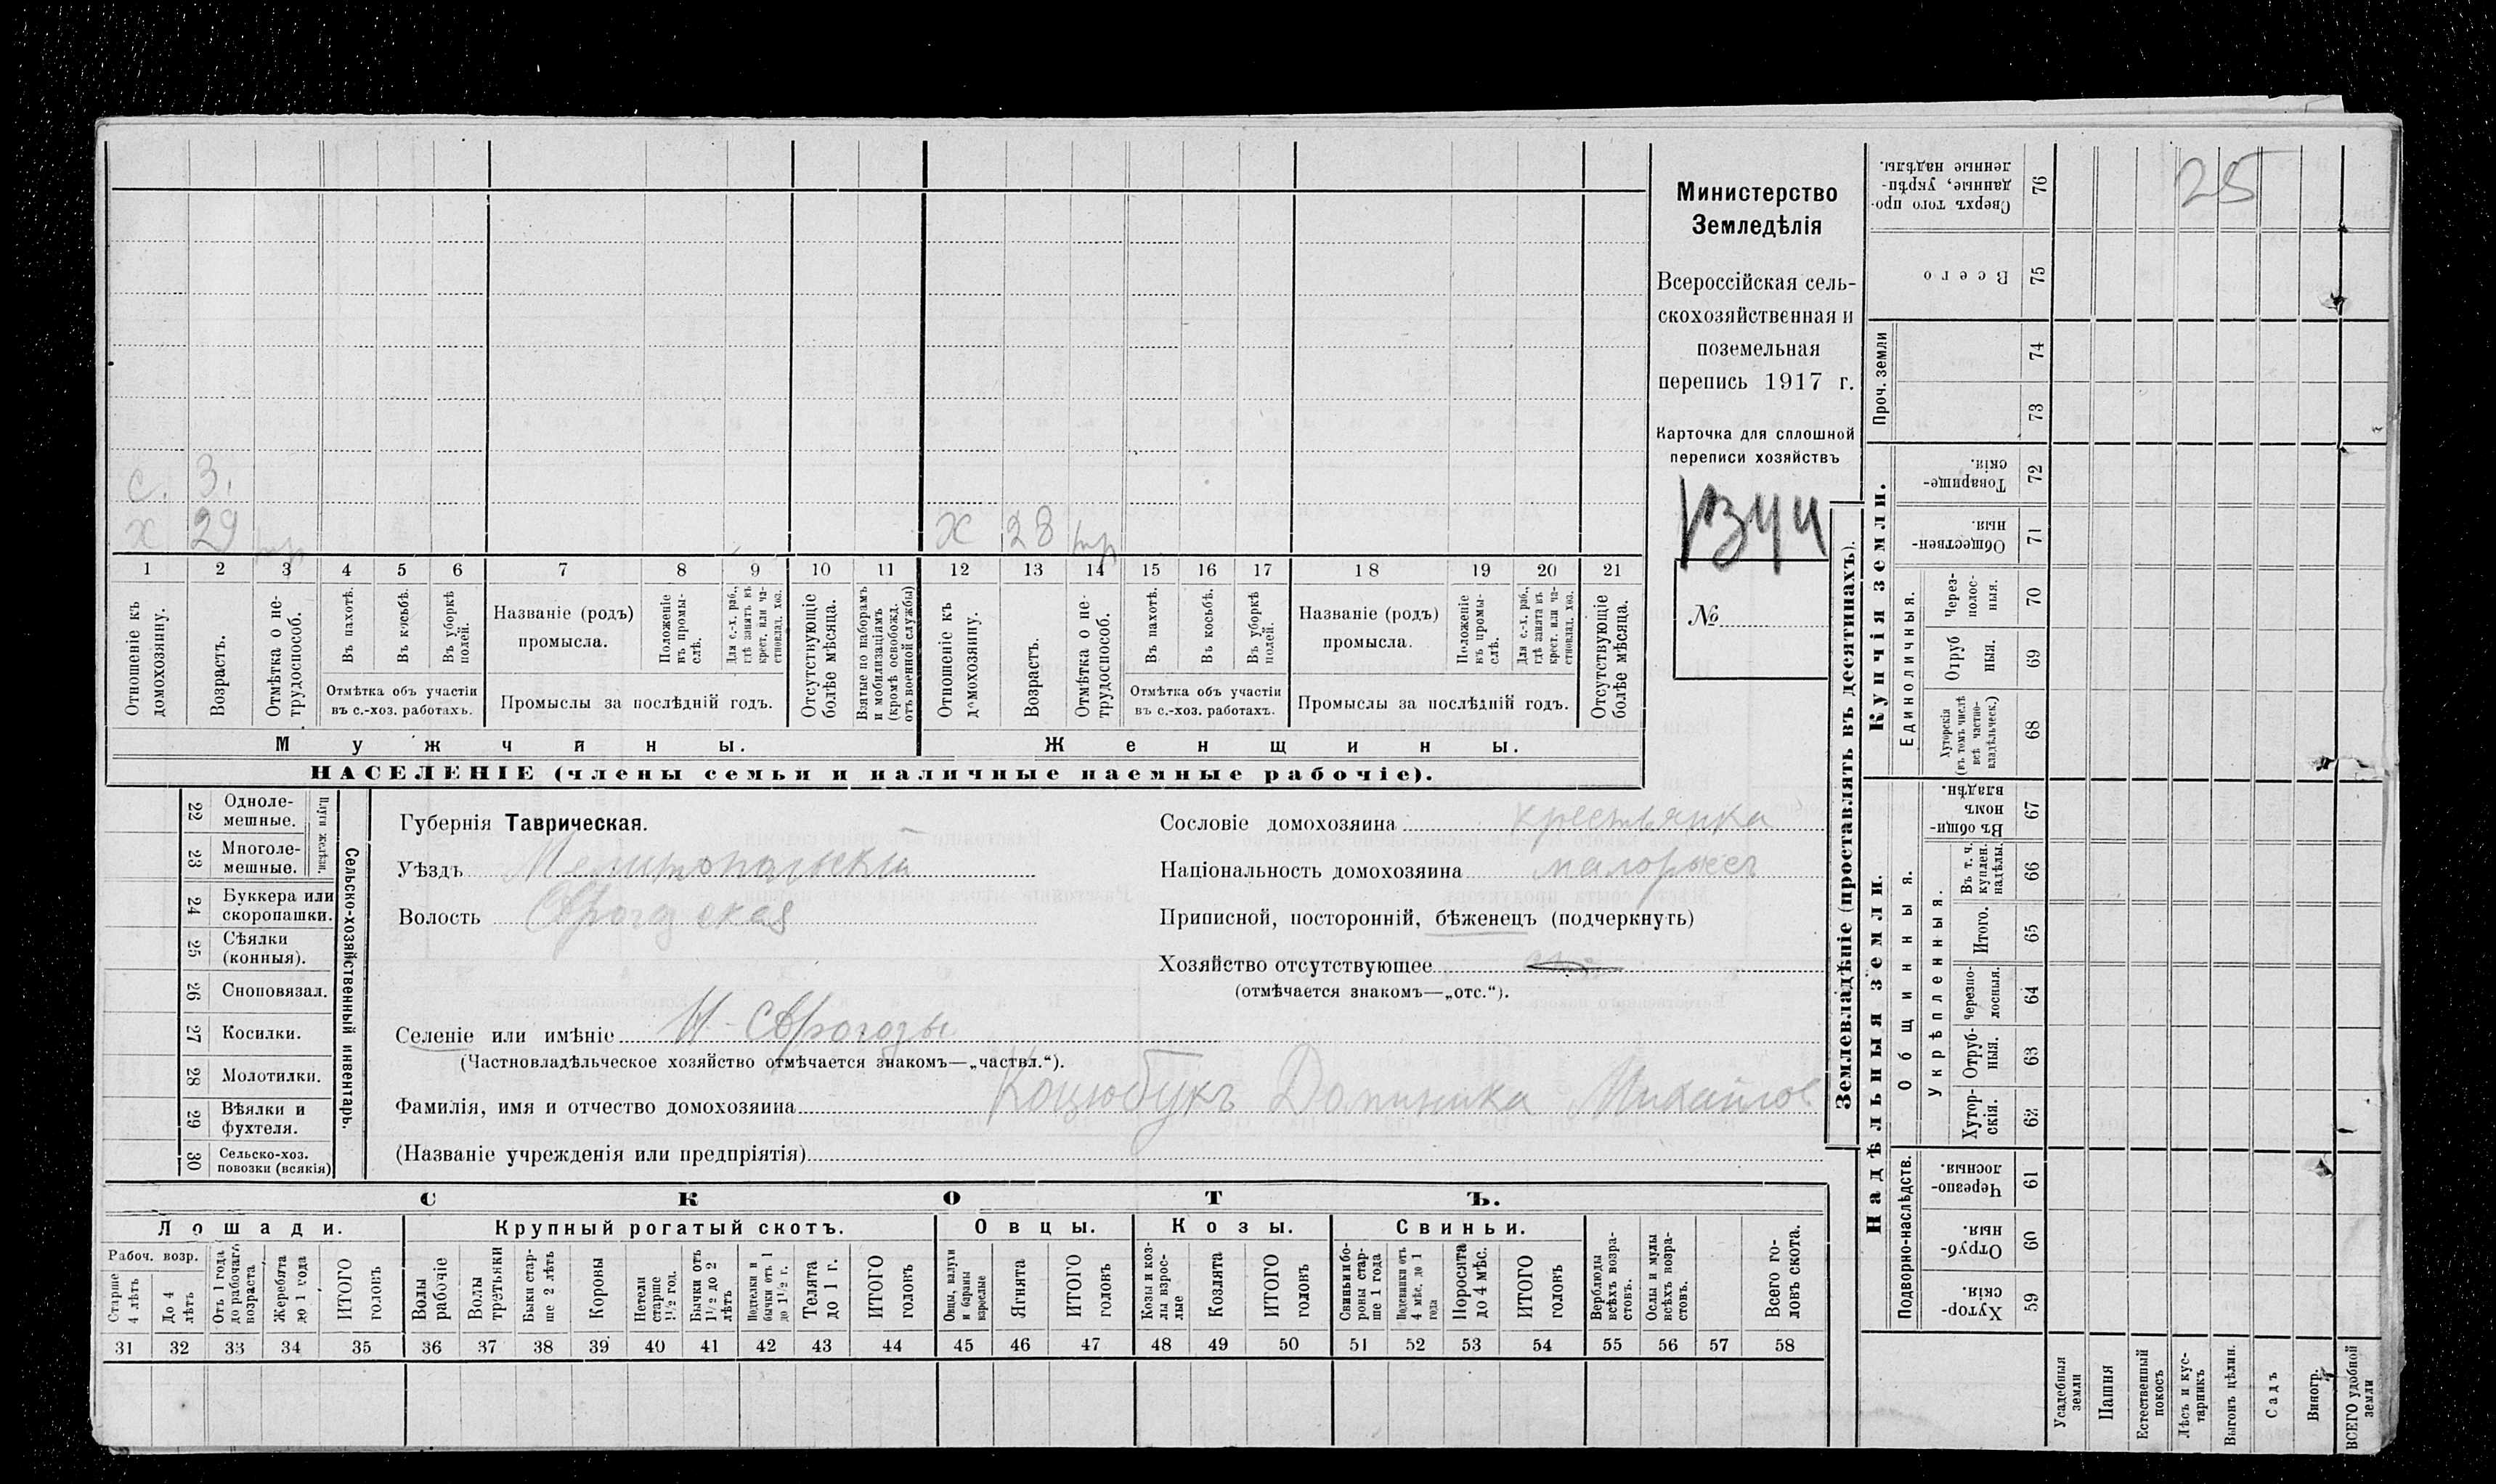 Министерство
Земледѣлія
Всероссійская сель-
скохозяйственная и
поземельная
перепись 1917 г.
Карточка для сплошной
переписи хозяйствъ
№
25
с. 3.
х 29 тр х 28 тр
1 2 3 4 5 6 7 8 9 10 11 12 13 14 15 16 17 18 19 20 21
Отношеніе къ домохозяину.
Возрастъ.
Отмѣтка о не-трудоспособ.
Въ пахотѣ.
Въ косьбѣ.
Въ уборкѣ полей.
Отмѣтка объ участіи
въ с.-хоз. работахъ.
Названіе (родъ)
промысла.
Положеніе въ промы-слѣ.
Для с.-х. раб., гдѣ занятъ въ крест. или ча-стновлад. хоз.
Промыслы за послѣдній годъ.
Отсутствующіе болѣе мѣсяца.
Взятые по наборамъ и мобилизаціямъ (кромѣ освобожд. отъ военной службы)
Отношеніе къ домохозяину.
Возрастъ.
Отмѣтка о не-трудоспособ.
Въ пахотѣ.
Въ косьбѣ.
Въ уборкѣ полей.
Отмѣтка объ участіи
въ с.-хоз. работахъ.
Названіе (родъ)
промысла.
Положеніе въ промы-слѣ.
Для с.-х. раб., гдѣ занята въ крест. или ча-стновлад. хоз.
Промыслы за послѣдній годъ.
Отсутствующіе болѣе мѣсяца.
Мужчины.
Женщины.
НАСЕЛЕНІЕ (члены семьи и наличные наемные рабочіе).
22 Одноле-мешные.
23 Многоле-мешные.
Плуги желѣзн.
24 Буккера или скоропашки.
25 Сѣялки (конныя).
26 Сноповязал.
27 Косилки.
28 Молотилки.
29 Вѣялки и фухтеля.
30 Сельско-хоз. повозки (всякія)
Сельско-хозяйственный инвентарь.
Губернія Таврическая.
Уѣздъ Мелитопольскій
Волость
Селеніе или имѣніе
(Частновладѣльческое хозяйство отмѣчается знакомъ—„частвл.“).
Фамилія, имя и отчество домохозяина Коцюбукъ Доминика Михайлов
(Названіе учрежденія или предпріятія)
Сословіе домохозяина крестьянка
Національность домохозяина малорысс
Приписной, посторонній, бѣженецъ (подчеркнуть)
Хозяйство отсутствующее
(отмѣчается знакомъ—„отс.“).
СКОТЪ.
Лошади.
Крупный рогатый скотъ.
Овцы.
Козы.
Свиньи.
Рабоч. возр.
Старше 4 лѣтъ
До 4 лѣтъ
Отъ 1 года до рабочаго возраста
Жеребята до 1 года
ИТОГО головъ
Волы рабочіе
Волы третьяки
Быки стар-ше 2 лѣтъ
Коровы
Нетели старше 1½ год.
Бычки отъ 1½ до 2 лѣтъ
Подтелки и бычки отъ 1 до 1½ г.
Телята до 1 г.
ИТОГО головъ
Овцы, валухи и бараны взрослые
Ягнята
ИТОГО головъ
Козы и коз-лы взрос-лые
Козлята
ИТОГО головъ
Свиньи и бо-роны стар-ше 1 года
Подсвинки отъ 4 мѣс. до 1 года
Поросята до 4 мѣс.
ИТОГО головъ
Верблюды всѣхъ возра-стовъ.
Ослы и мулы всѣхъ возра-стовъ.
Всего го-ловъ скота.
31 32 33 34 35 36 37 38 39 40 41 42 43 44 45 46 47 48 49 50 51 52 53 54 55 56 57 58
Землевладѣніе (проставлять въ десятинахъ).
Сверхъ того про-данные, укрѣп-ленные надѣлы. 76
Всего 75
Проч. земли 74
73
Купчія земли.
Товарище-скія. 72
Обществен-ныя. 71
Единоличныя.
Через-полос-ныя. 70
Отруб ныя. 69
Хуторскія (въ томъ числѣ всѣ частно-владѣльческ.) 68
Надѣльныя земли.
Общинныя.
Въ общи-номъ владѣн. 67
Укрѣпленныя.
Въ т. ч. куплен. надѣлы. 66
Итого. 65
Черезпо-лосныя. 64
Отруб-ныя. 63
Хутор-скія. 62
Подворно-наслѣдств.
Черезпо-лосныя. 61
Отруб-ныя. 60
Хутор-скія. 59
Усадебныя земли
Пашня
Естественный покосъ
Лѣсъ и кус-тарникъ
Выгонъ цѣлин.
Садъ
Виногр.
ВСЕГО удобной земли